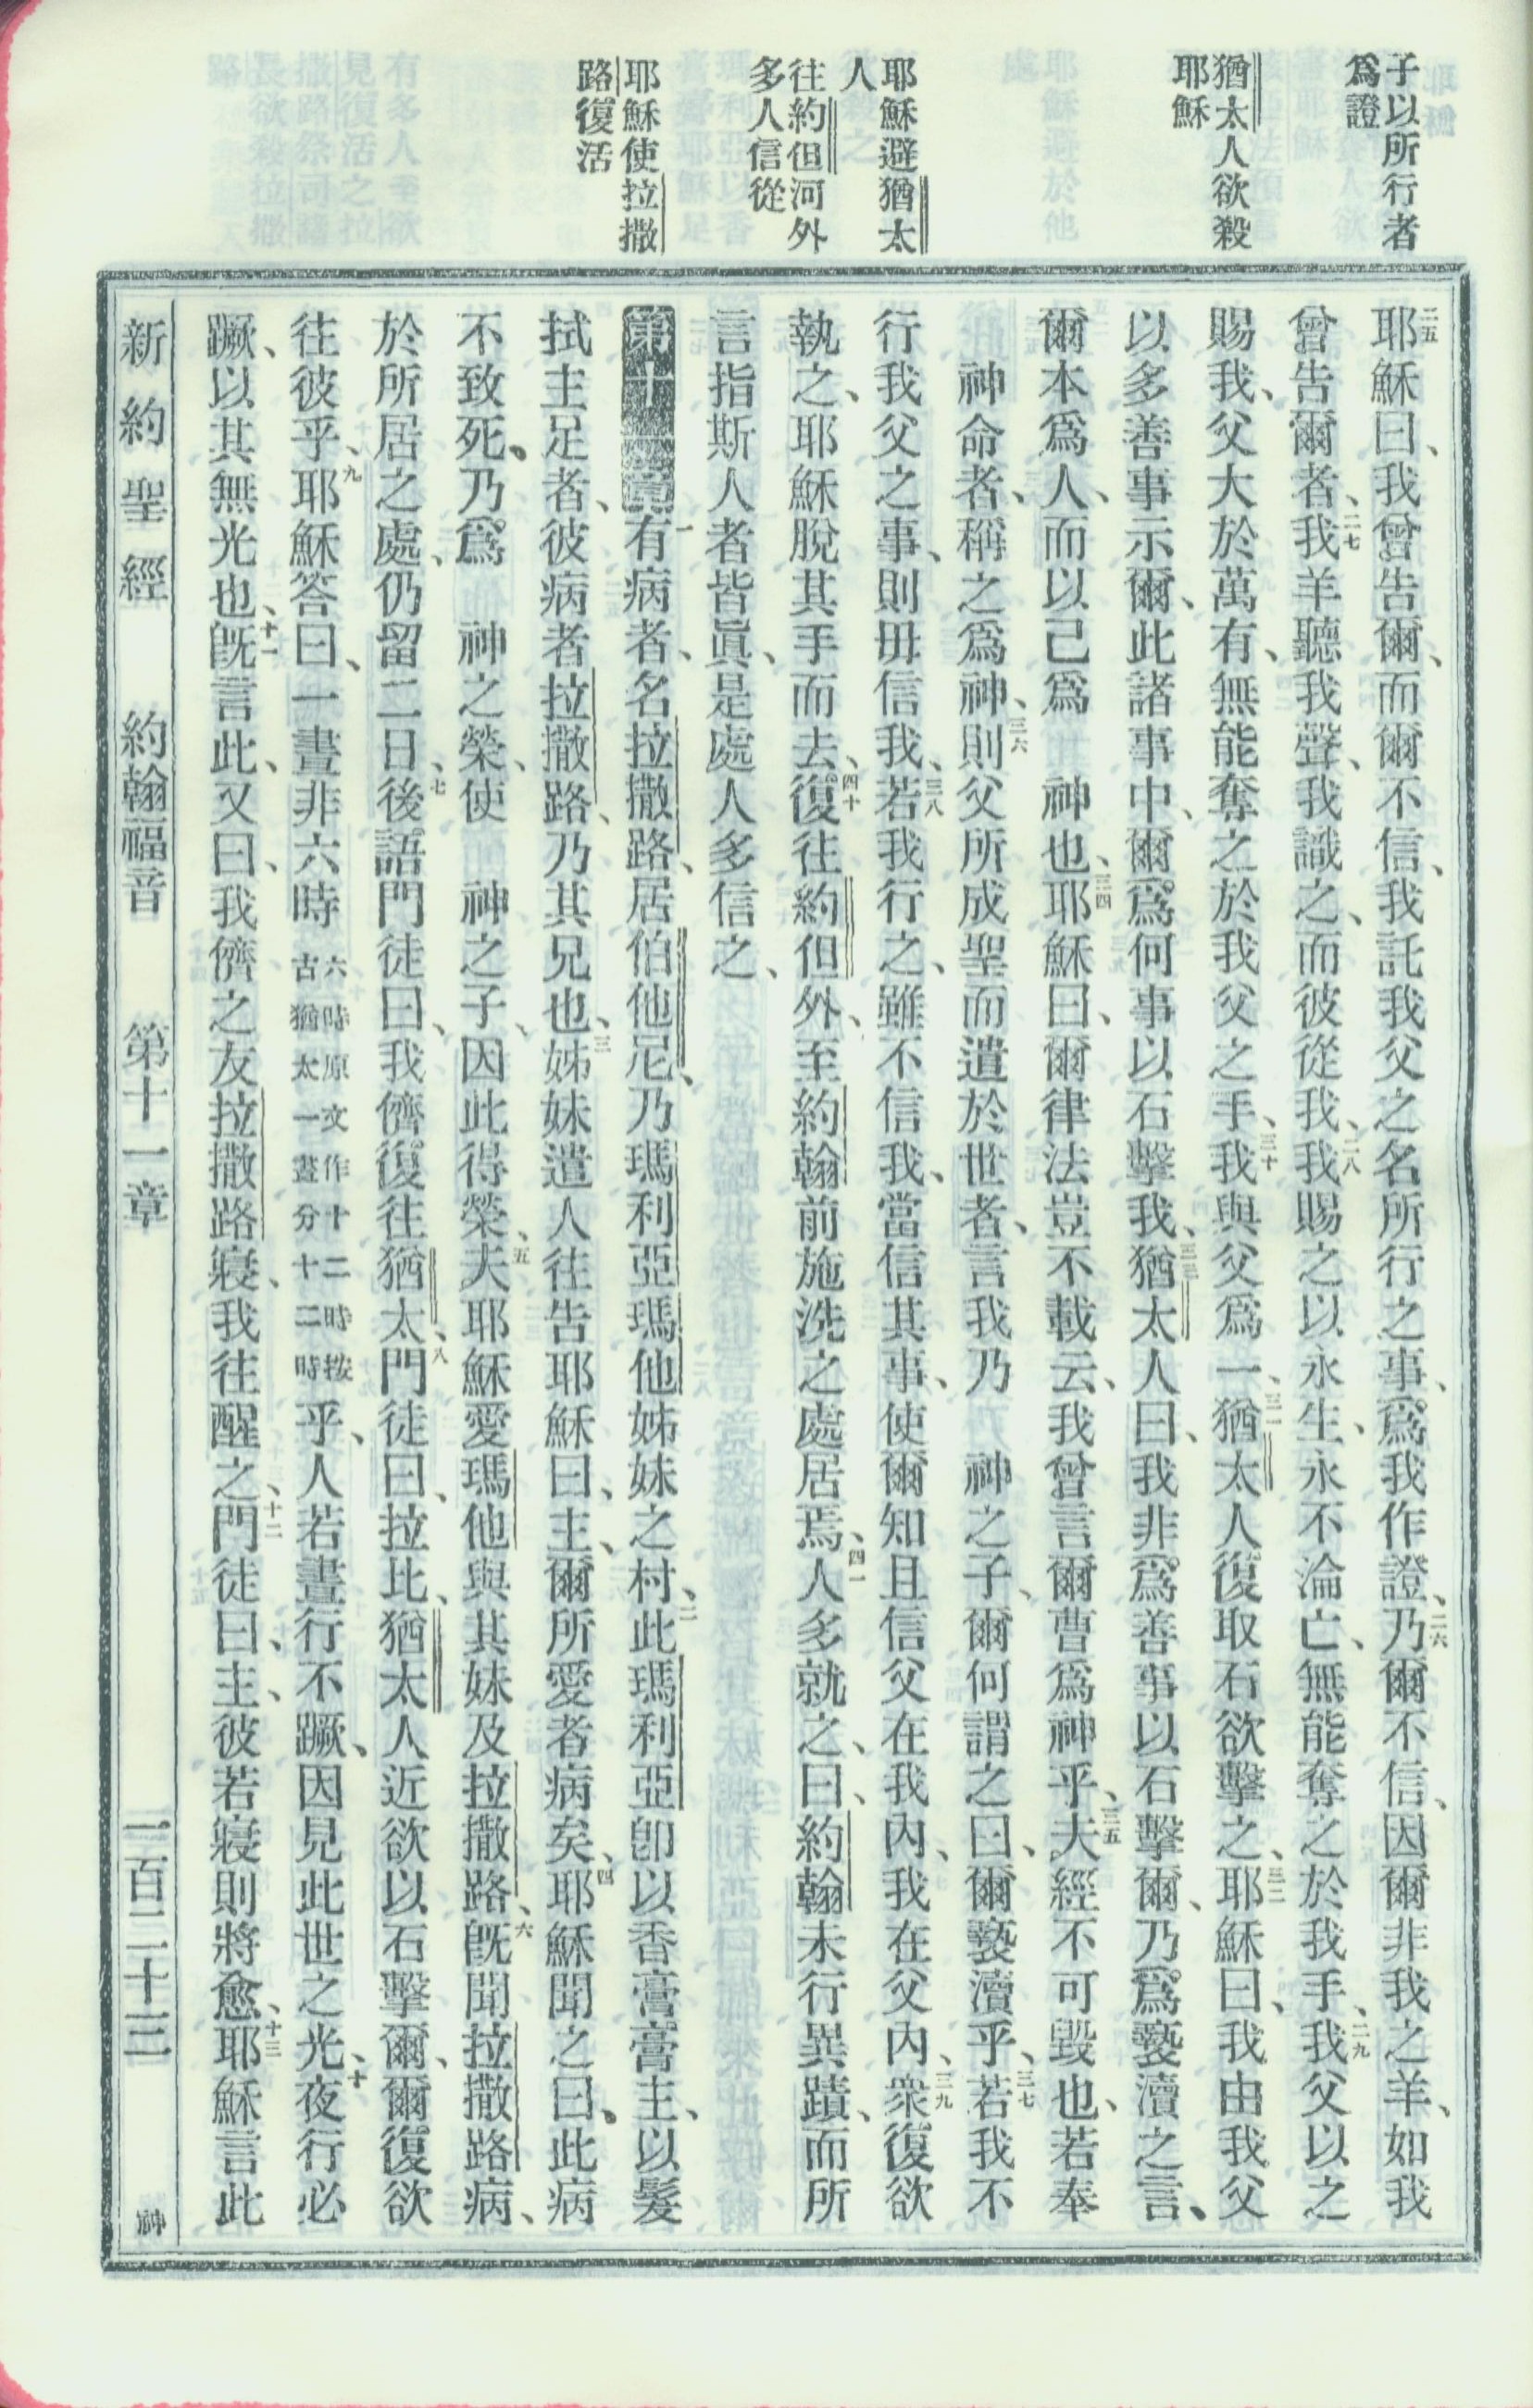 子以所行者
爲證
猶太人欲殺
耶穌
耶穌避猶太
人
往約但河外
多人信從
耶穌使拉撒
路復活
二五耶穌曰、我曾告爾、而爾不信、我託我父之名所行之事、爲我作證、二六乃爾不信、因爾非我之羊、如我
曾告爾者、二七我羊聽我聲、我識之、而彼從我、二八我賜之以永生、永不淪亡、無能奪之於我手、二九我父以之
賜我、父大於萬有、無能奪之於我父之手、三十我與父爲一、三一猶太人復取石欲擊之、三二耶穌曰、我由我父
以多善事示爾、此諸事中、爾爲何事以石擊我、三三猶太人曰、我非爲善事以石擊爾、乃爲褻瀆之言、
爾本爲人、而以己爲 神也、三四耶穌曰、爾律法豈不載云、我曾言爾曹爲神乎、三五夫經不可毀也、若奉
神命者、稱之爲神、三六則父所成聖而遣於世者、言我乃 神之子、爾何謂之曰、爾褻瀆乎、三七若我不
行我父之事、則毋信我、三八若我行之、雖不信我、當信其事、使爾知且信父在我內、我在父內、三九衆復欲
執之、耶穌脫其手而去、四十復往約但外、至約翰前施洗之處居焉、四一人多就之、曰、約翰未行異蹟、而所
言指斯人者皆眞、是處人多信之、
第十一章一有病者、名拉撒路、居伯他尼、乃瑪利亞瑪他姊妹之村、二此瑪利亞卽以香膏膏主、以髮
拭主足者、彼病者拉撒路、乃其兄也、三姊妹遣人往告耶穌曰、主、爾所愛者病矣、四耶穌聞之曰、此病
不致死、乃爲 神之榮、使 神之子、因此得榮、五夫耶穌愛瑪他與其妹及拉撒路、六旣聞拉撒路病、
於所居之處、仍留二日、七後語門徒曰、我儕復往猶太、八門徒曰、拉比、猶太人近欲以石擊爾、爾復欲
往彼乎、九耶穌答曰、一晝非六時六時原文作十二時按古猶太一晝分十二時乎、人若晝行不蹶、因見此世之光、十夜行必
蹶、以其無光也、十一旣言此、又曰、我儕之友拉撒路寢、我往醒之、十二門徒曰、主、彼若寢則將愈、十三耶穌言此
新約聖經 約翰福音 第十一章 一百二十三 神